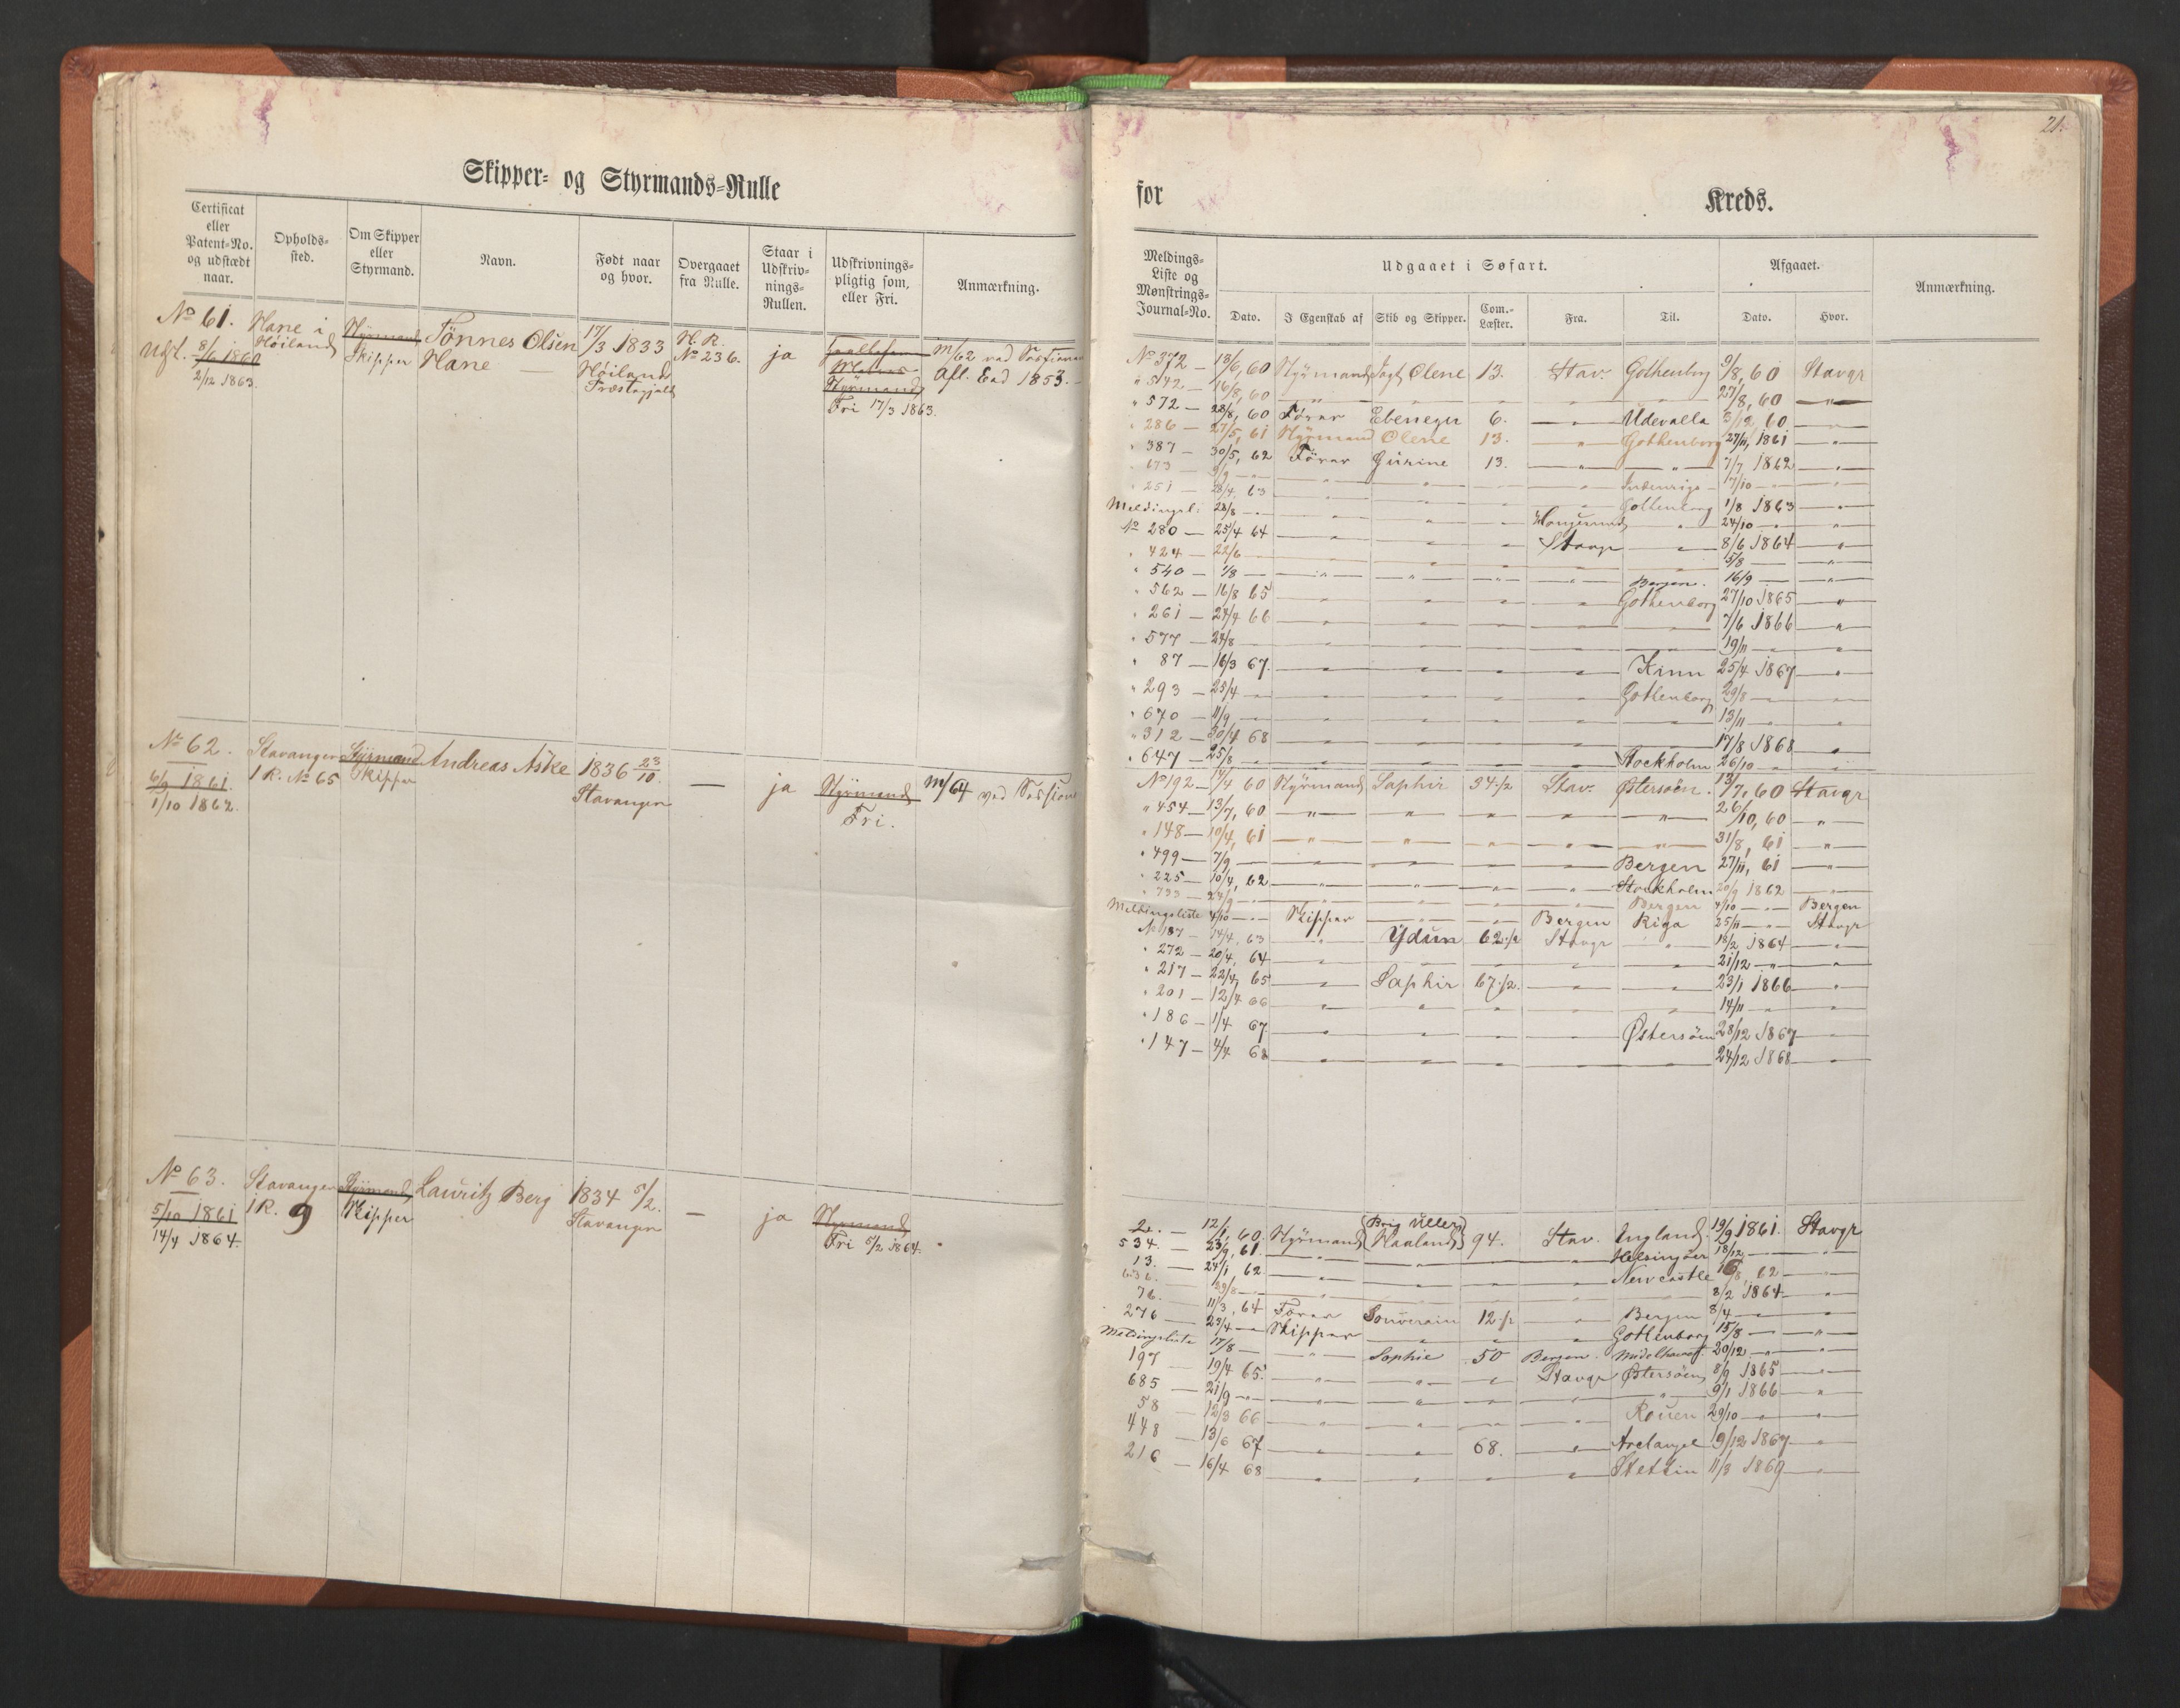 Skipper- og Styrmands-Rulle
Certificat eller Patent-No. og udstædt naar.
Opholds-sted.
Om Skipper eller Styrmand.
Navn.
Født naar og hvor.
Overgaaet fra Rulle.
Staar i Udskriv-nings-Rullen.
Udskrivnings-pligtig som, eller Fri.
Anmærkning.
No 61. Hane i Styrmand Tønnes Olsen 17/3 1833 H.R. ja
Udst. 8/6 1860 Høiland Skipper Hane Høiland No 236. m/62 ved Sessionen
2/12 1863. Præstegjeld Styrmand Afl. Eed 1853.
Fri 17/3 1863.
No 62. Stavanger Styrmand Andreas Aske 1836 23/10. — ja Styrmand m/64 ved Session
6/9 1861. 1 R. No 65 Skipper Stavanger Fri.
1/10 1862.
No 63. Stavanger Styrmand Lauritz Berg 1834 5/2. — ja Styrmand
5/10 1861 1 R. 9 Skipper Stavanger Fri 5/2 1864.
14/4 1864.
21.
for Kreds.
Meldings-Liste og Mønstrings-Journal-No.
Udgaaet i Søfart.
Afgaaet.
Anmærkning.
Dato. I Egenskab af Skib og Skipper. Com.-Læster. Fra. Til. Dato. Hvor.
No 372 — 13/6, 60 Styrmand Jagt Olene 13. Stav. Gothenborg 9/8, 60 Stavgr
" 542 — 16/8, 60 — " — — — — — 27/8, 60 — " —
" 572 — 28/8, 60 Fører Ebeneser 6. — " — Udevalla 3/12 60 — " —
" 286 — 27/5, 61 Styrmand Olene 13. — " — Gothenborg 27/11, 1861 — " —
" 387 — 30/5, 62 Fører Gurine 13. — " — — " — 7/7 1862 — " —
" 673 — 9/9 — " — — " — — " — — — " — Indenrigs 17/10 — " — — " —
" 251 — 28/4, 63 — " — — " — — — " — Gothenborg 1/8 1863 — " —
Meldingsl. 28/8 — " — — " — — " — — — " — 24/10 — " — — " —
No 280 — 25/4 64 — " — — " — — " — Stavgr — " — 8/6 1864 — " —
" 424 — 22/6 — — " — — " — — " — — " — — " — 5/8 — — " —
" 540 — 1/8 — — " — — " — — " — — " — Bergen. 16/9 — — " —
" 562 — 16/8 65 — " — — " — — " — — " — Gothenborg 27/10 1865 — " —
" 261 — 24/4 66 — " — — " — — " — — " — — " — 7/6 1866 — " —
" 577 — 24/8 — — " — — " — — " — — " — — " — 19/11 — " — — " —
" 87 — 16/3 67. — " — — " — — " — — " — Kinn 25/4 1867 — " —
" 293 — 25/4 — " — — " — — " — — " — — " — Gothenborg 29/8 — " — — " —
" 670 — 11/9 — " — — " — — " — — " — — " — — " — 13/11 — " — — " —
" 312 — 30/4 68 — " — — " — — " — — " — — " — 17/8 1868 — " —
" 647 — 25/8 — " — — " — — " — — " — — " — Stockholm 26/10 — " — — " —
No 192 — 17/4 60 Styrmand Saphir 34 1/2 Stav. Østersøen. 13/7, 60 Stavgr
" 454 — 13/7, 60 — " — — " — — " — — " — — " — 26/10, 60 — " —
" 148 — 10/4, 61 — " — — " — — " — — " — — " — 31/8, 61 — " —
" 499 — 7/9 — — " — — " — — " — — " — Bergen 27/11, 61 — " —
" 225 — 10/4, 62 — " — — " — — " — — " — Stockholm 20/9 1862 — " —
" 733 — 24/9 — " — — " — — " — — " — — " — Bergen 4/10 — " — Bergen
Meldingsliste 4/10 — " — Skipper — " — — " — Bergen Riga 25/11 — " — Stavgr
No 187 — 14/4, 63 — " — Ydun 62 1/2 Stavgr — " — 18/2 1864 — " —
" 272 — 20/4, 64 — " — — " — — " — — " — — " — 21/12 — " — — " —
" 217 — 22/4, 65 — " — Saphir 67 1/2. — " — — " — 23/1 1866 — " —
" 201 — 12/4 66 — " — — " — — " — — " — — " — 14/11 — " — — " —
" 186 — 1/4 67 — " — — " — — " — — " — Østersöen 28/12 1867 — " —
" 147 — 4/4 68 — " — — " — — " — — " — — " — 24/12 1868 — " —
2. — 12/1, 60. Styrmand (Brig Haaland) 94. Stav. England. 19/9 1861. Stavgr
534. — 23/9, 61. — " — — " — — — " — Helsingøer 18/12 — — " —
13. — 24/1 62 — " — — " — — " — — " — Newcastle 16/8, 62 — " —
29/8 — " — — " — — " — — " — — " — 8/2 1864 — " —
76. — 11/3, 64 Fører Souverain 12 1/2 — " — Bergen 8/4 — " — — " —
276 — 23/4 — " — Skipper — " — — " — — " — Gothenborg 15/8 — — " —
Meldingsliste 17/8 — — " — Sophie 50 Bergen. Midelhavet. 20/12 — " — — " —
197 — 19/4 65. — " — — " — — " — Stavgr Østersöen 8/9 1865 — " —
685 — 21/9 — " — — " — — " — — " — — " — — " — 9/1 1866 — " —
58 — 12/3 66 — " — — " — — " — — " — Rouen 29/10 — " — — " —
448 — 13/6 67 — " — — " — 68. — " — Archangel 9/12 1867 — " —
216 — 16/4 68 — " — — " — — " — — " — Stettin 11/3 1869 — " —